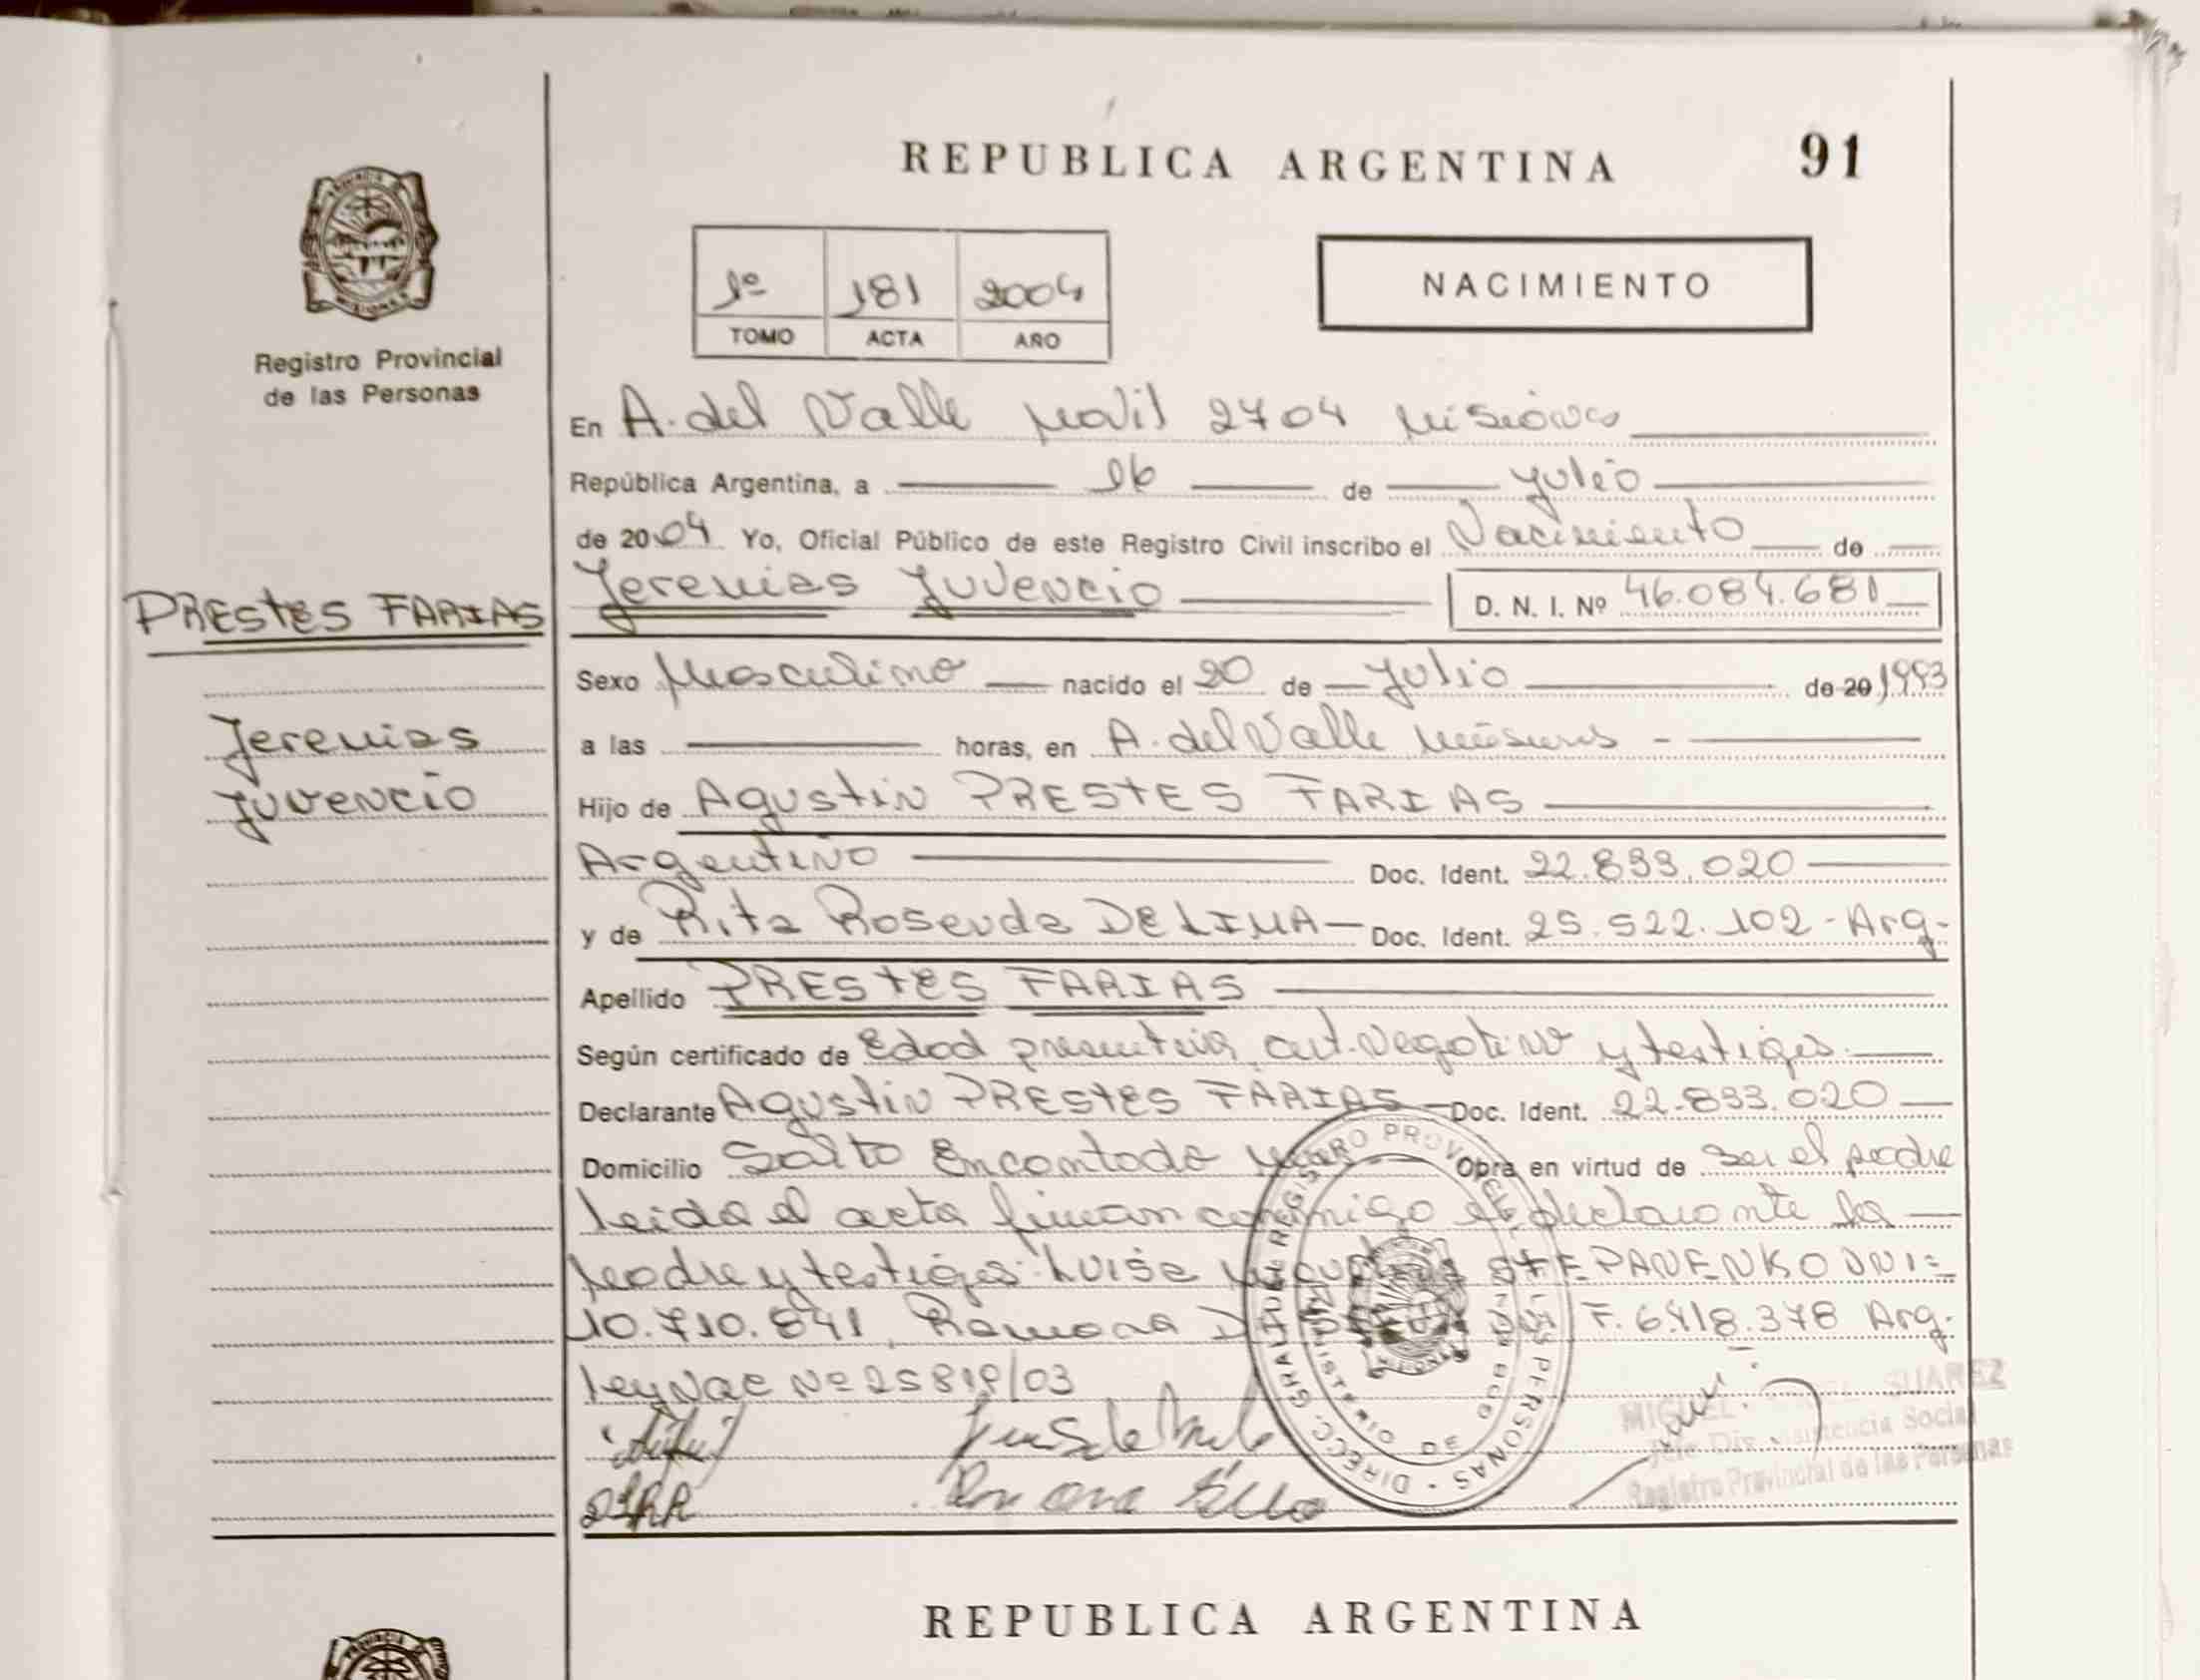 REPUBLICA ARGENTINA
91
1º 181 2004
TOMO ACTA AÑO
NACIMIENTO
Registro Provincial
de las Personas
En A. del Valle Movil 2704 Misiones
República Argentina, a 16 de Julio
de 2004 Yo, Oficial Público de este Registro Civil inscribo el Nacimiento de
PRESTES FARIAS
Jeremias Juvencio D. N. I. Nº 46.084.681
Sexo Masculino nacido el 20 de Julio de 20 1993
Jeremias
Juvencio
a las horas, en A. del Valle Misiones
Hijo de Agustin PRESTES FARIAS
Argentino Doc. Ident. 22.833.020
y de Rita Rosenda DE LIMA Doc. Ident. 25.522.102 - Arg.
Apellido PRESTES FARIAS
Según certificado de Edad presuntiva, cert. negativo y testigos.
Declarante Agustin PRESTES FARIAS Doc. Ident. 22.833.020
Domicilio Salto Encantado Obra en virtud de ser el padre
Leida el acta firman conmigo el declarante la
Madre y testigos: Luisa STEPANENKO DNI=
10.710.841, Ramona F. 6.418.378 Arg.
Ley Nac Nº 25819/03
MIGUEL SUAREZ
Jefe Div. Asistencia Social
Registro Provincial de las Personas
REPUBLICA ARGENTINA